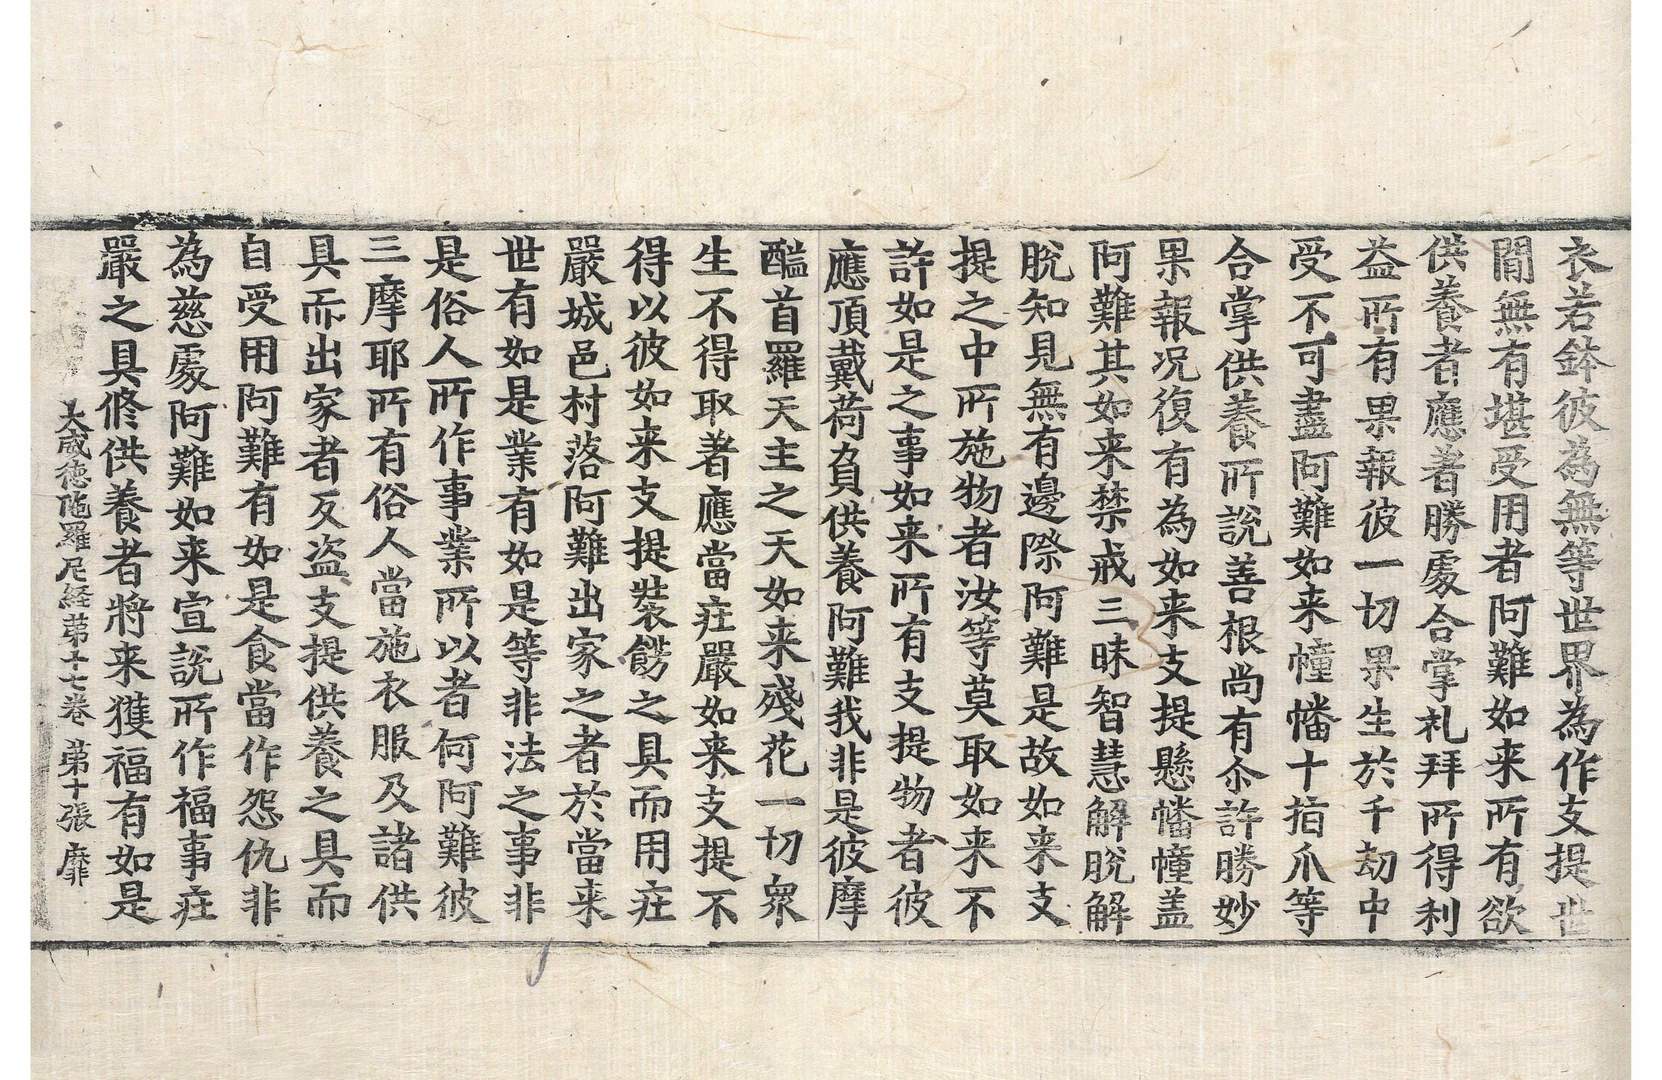 衣若鉢彼為無等世界為作支提世
閒無有堪受用者阿難如来所有欲
供養者應者勝處合掌礼拜所得利
益所有果報彼一切果生於千劫中
受不可盡阿難如来幢幡十指爪等
合掌供養所說善根尚有尒許勝妙
果報况復有為如来支提懸幡幢盖
阿難其如来禁戒三昧智慧解脫解
脫知見無有邊際阿難是故如来支
提之中所施物者汝等莫取如来不
許如是之事如来所有支提物者彼
應頂戴荷負供養阿難我非是彼摩
醯首羅天主之天如来殘花一切衆
生不得取著應當庄嚴如来支提不
得以彼如来支提裝餝之具而用庄
嚴城邑村落阿難出家之者於當来
世有如是業有如是等非法之事非
是俗人所作事業所以者何阿難彼
三摩耶所有俗人當施衣服及諸供
具而出家者反盜支提供養之具而
自受用阿難有如是食當作怨仇非
為慈處阿難如来宣說所作福事庄
嚴之具俻供養者將来獲福有如是
大威德陁羅尼経苐十七卷 苐十張 靡